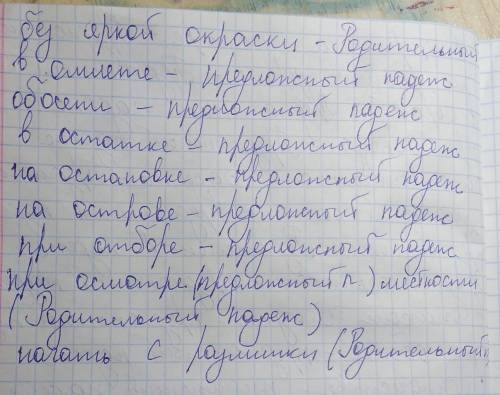 без яркой окраски - Родительный
в омлете - Предложный падеж
обосети - предложный падеж
в остатке - предложный падеж
на остановке - предложный падеж
на острове - предложный падеж
при отборе - предложный падеж
при осмотре (предложный п.) местности
(Родительный падеж)
начать с разминки (Родительный